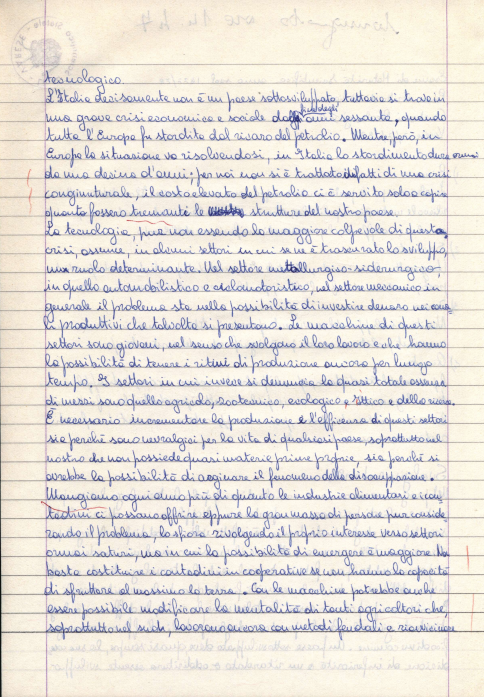 consegnato ore 14.47
tecnologico.
L'Italia decisamente non è un paese sottosviluppato, tuttavia si trova in
una grave crisi economica e sociale dagli anni sessanta, quando
tutta l'Europa fu stordita dal rincaro del petrolio. Mentre, però, in
Europa la situazione va risolvendosi, in Italia lo stordimento dura ormai
da una decina d'anni; per noi non si è trattato infatti di una crisi
congiunturale, il costo elevato del petrolio ci è servito solo a capire
quanto fossero tremanti le strutture del nostro paese.
La tecnologia, pur non essendo la maggiore colpevole di questa
crisi, assume, in alcuni settori in cui se ne è trascurato lo sviluppo,
un ruolo determinante. Nel settore metallurgico-siderurgico,
in quello automobilistico e ciclomotoristico, nel settore meccanico in
generale il problema sta nella possibilità di investire denaro nei cana-
li produttivi che talvolta si presentano. Le macchine di questi
settori sono giovani, nel senso che svolgono il loro lavoro e che hanno
la possibilità di tenere i ritmi di produzione ancora per lungo
tempo. I settori in cui invece si denuncia la quasi totale assenza
di mezzi sono quello agricolo, zootecnico, ecologico, ittico e della ricerca.
È necessario incrementare la produzione e l'efficienza di questi settori
sia perché sono nevralgici per la vita di qualsiasi paese, soprattutto nel
nostro che non possiede quasi materie prime proprie, sia perché si
avrebbe la possibilità di arginare il fenomeno della disoccupazione.
Mangiamo ogni anno più di quanto le industrie alimentari e i con-
tadini ci possano offrire eppure la gran massa di persone pur conside-
rando il problema, lo sfiora rivolgendo il proprio interesse verso settori
ormai saturi, ma in cui la possibilità di emergere è maggiore. Non
basta costituire i contadini in cooperative se non hanno la capacità
di sfruttare al massimo la terra. Con le macchine potrebbe anche
essere possibile modificare la mentalità di tanti agricoltori che,
soprattutto nel sud, lavorano ancora con metodi feudali e